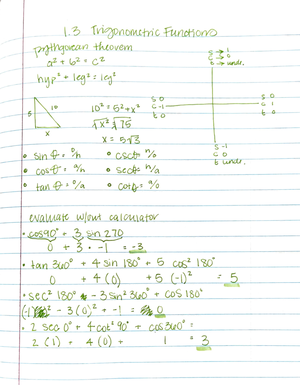 1.3 Trigonometric Functions
pythgorean theorem
a² + b² = c²
hyp² + leg² = leg²
S → 1
C 0
t → unde.
5 10 x
10² = 5² + x²
√x² √75
x = 5√3
S 0
C -1
t 0
S 0
C 1
t 0
S -1
C 0
t undef.
• sin θ = o/h • csc θ = h/o
• cos θ = a/h • sec θ = h/a
• tan θ = o/a • cot θ = a/o
evaluate w/out calculator
• cos 90° + 3 sin 270
0 + 3 · -1 = -3
• tan 360° + 4 sin 180° + 5 cos² 180°
0 + 4(0) + 5(-1)² = 5
• sec² 180° - 3 sin² 360° + cos 180°
(-1)² - 3(0)² + -1 = 0
• 2 sec 0° + 4 cot² 90° + cos 360° =
2(1) + 4(0) + 1 = 3